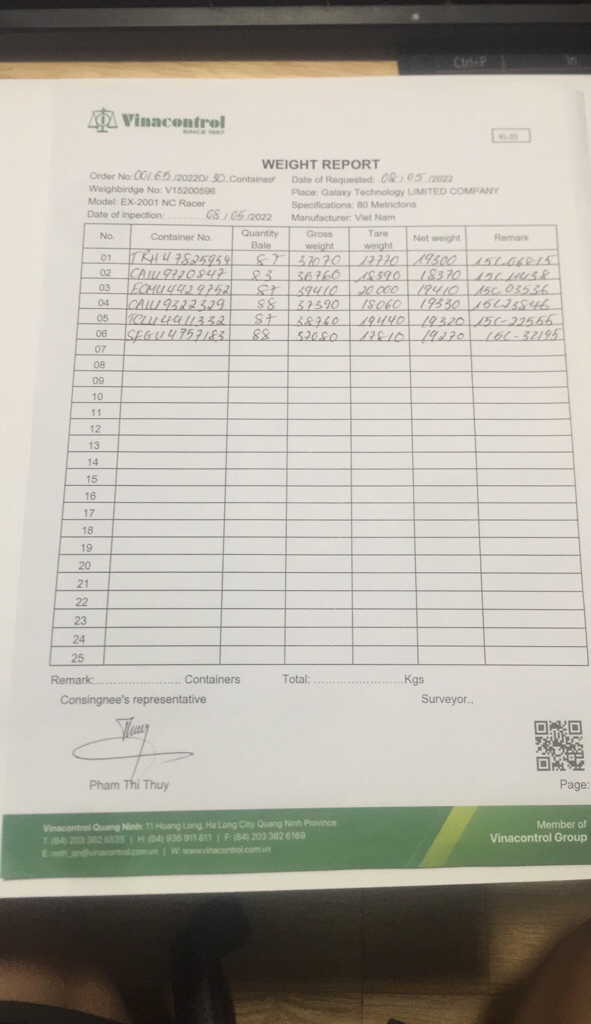 Ctrl+P
Vinacontrol
SINCE 1957
KL-02
WEIGHT REPORT
Order No: 00165/2022D/30.Container Date of Requested: 08/05/2022
Weighbirdge No: V15200596 Place: Galaxy Technology LIMITED COMPANY
Model: EX-2001 NC Racer Specifications: 80 Metrictons
Date of inpection: ............ 08/05/2022 Manufacturer: Viet Nam
No. Container No. Quantity Bale Gross weight Tare weight Net weight Remark
01 37070 17770 19300
02 CAIU9720847 83 36760 18390 18370
03 FCMU4429752 87 39410 20000 19410 15C03536
04 CAIU9322329 88 37390 18060 19330 15C23846
05 TCLU4411332 87 38760 19440 19320 15C-22555
06 SEGU4757183 88 37080 17810 19270 15C-32195
07
08
09
10
11
12
13
14
15
16
17
18
19
20
21
22
23
24
25
Remark:........................ Containers Total: ........................Kgs
Consingnee's representative Surveyor.,
Pham Thi Thuy
Page:
Vinacontrol Quang Ninh: 11 Hoang Long, Ha Long City, Quang Ninh Province
T: (84) 203 382 5535 | H: (84) 936 911 811 | F: (84) 203 382 6169
W: www.vinacontrol.com.vn
Member of
Vinacontrol Group